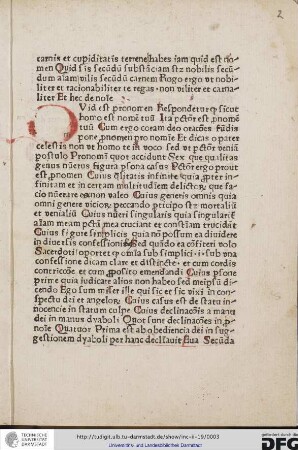 2
carnis et cupiditatis terrene habes iam quid est no-
men Quid sis secūdū substāciam s̄z nobilis secū-
dum aīam vilis secūdū carnem Rogo ergo vt nobi-
liter et racionabiliter te regas· non viliter et carna-
liter Et hec de nōie
Quid est pronomen Respondetur q̄ sicut
homo est nomē tuū Ita pctōr est ,pnomē
tuū Cum ergo coram deo oracōes fūdis
pone ,pnomen pro nomīe Et dicas o pater
celestis non vt homo te in voco sed vt pctōr veniā
postulo Pronomī quot accidunt Sex que qualitas
genus nūerus figura p̄sona casus Pctōr ergo prout
est ,pnomen Cuius q̄litatis infinite quia ,ppter in-
finitam et in certam multitudīem delictor̄ que fa-
cio nūerare non valeo Cuius generis omnis quia
omni genere viciorꝝ peccando pricipo sc̄z mortaliū
et venialiū Cuius nūeri singularis quia singularit̄
aīam meam pctā mea cruciant et consciam trucidāt
Cuius figure simplicis quia nō possum ea diuidere
in diuersis confessionibꝰ Sed quādo ea cōfiteri volo
Sacerdoti oportet ꝙ omīa sub simplici ·i· sub vna
confessione dicam clare et distincte· et cum cordis
contricōe· et cum ,pposito emendandi Cuius p̄sone
prime quia iudicare alios non habeo sed meipsū di-
cendo Ego sum miser ille qui sic et sic vixi in con-
spectu dei et angelorꝝ Cuius casus est de statu in-
nocencie in statum culpe Cuius declinacōis a manu
dei in manus dyaboli Quot sunt declinacōes in ,p-
noīe Quatuor Prima est ab obediencia dei in sug-
gestionem dyaboli per hanc declīauit Eua Secūda
TECHNISCHE
UNIVERSITÄT
DARMSTADT
http://tudigit.ulb.tu-darmstadt.de/show/inc-ii-19/0003
Universitäts- und Landesbibliothek Darmstadt
gefördert durch die
DFG